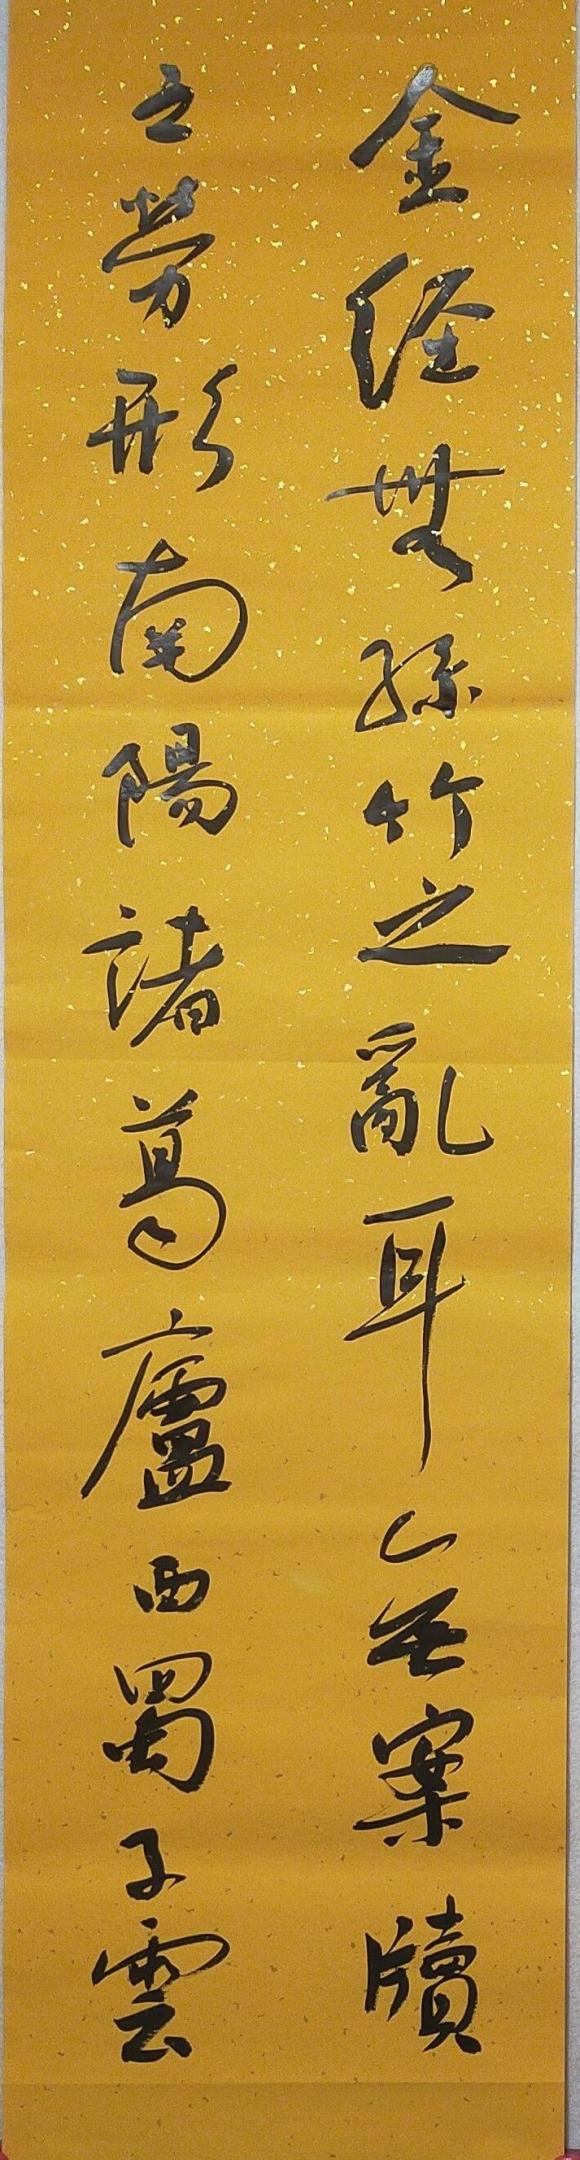 金經無絲竹之亂耳無案牘
之勞形南陽諸葛廬西蜀子雲